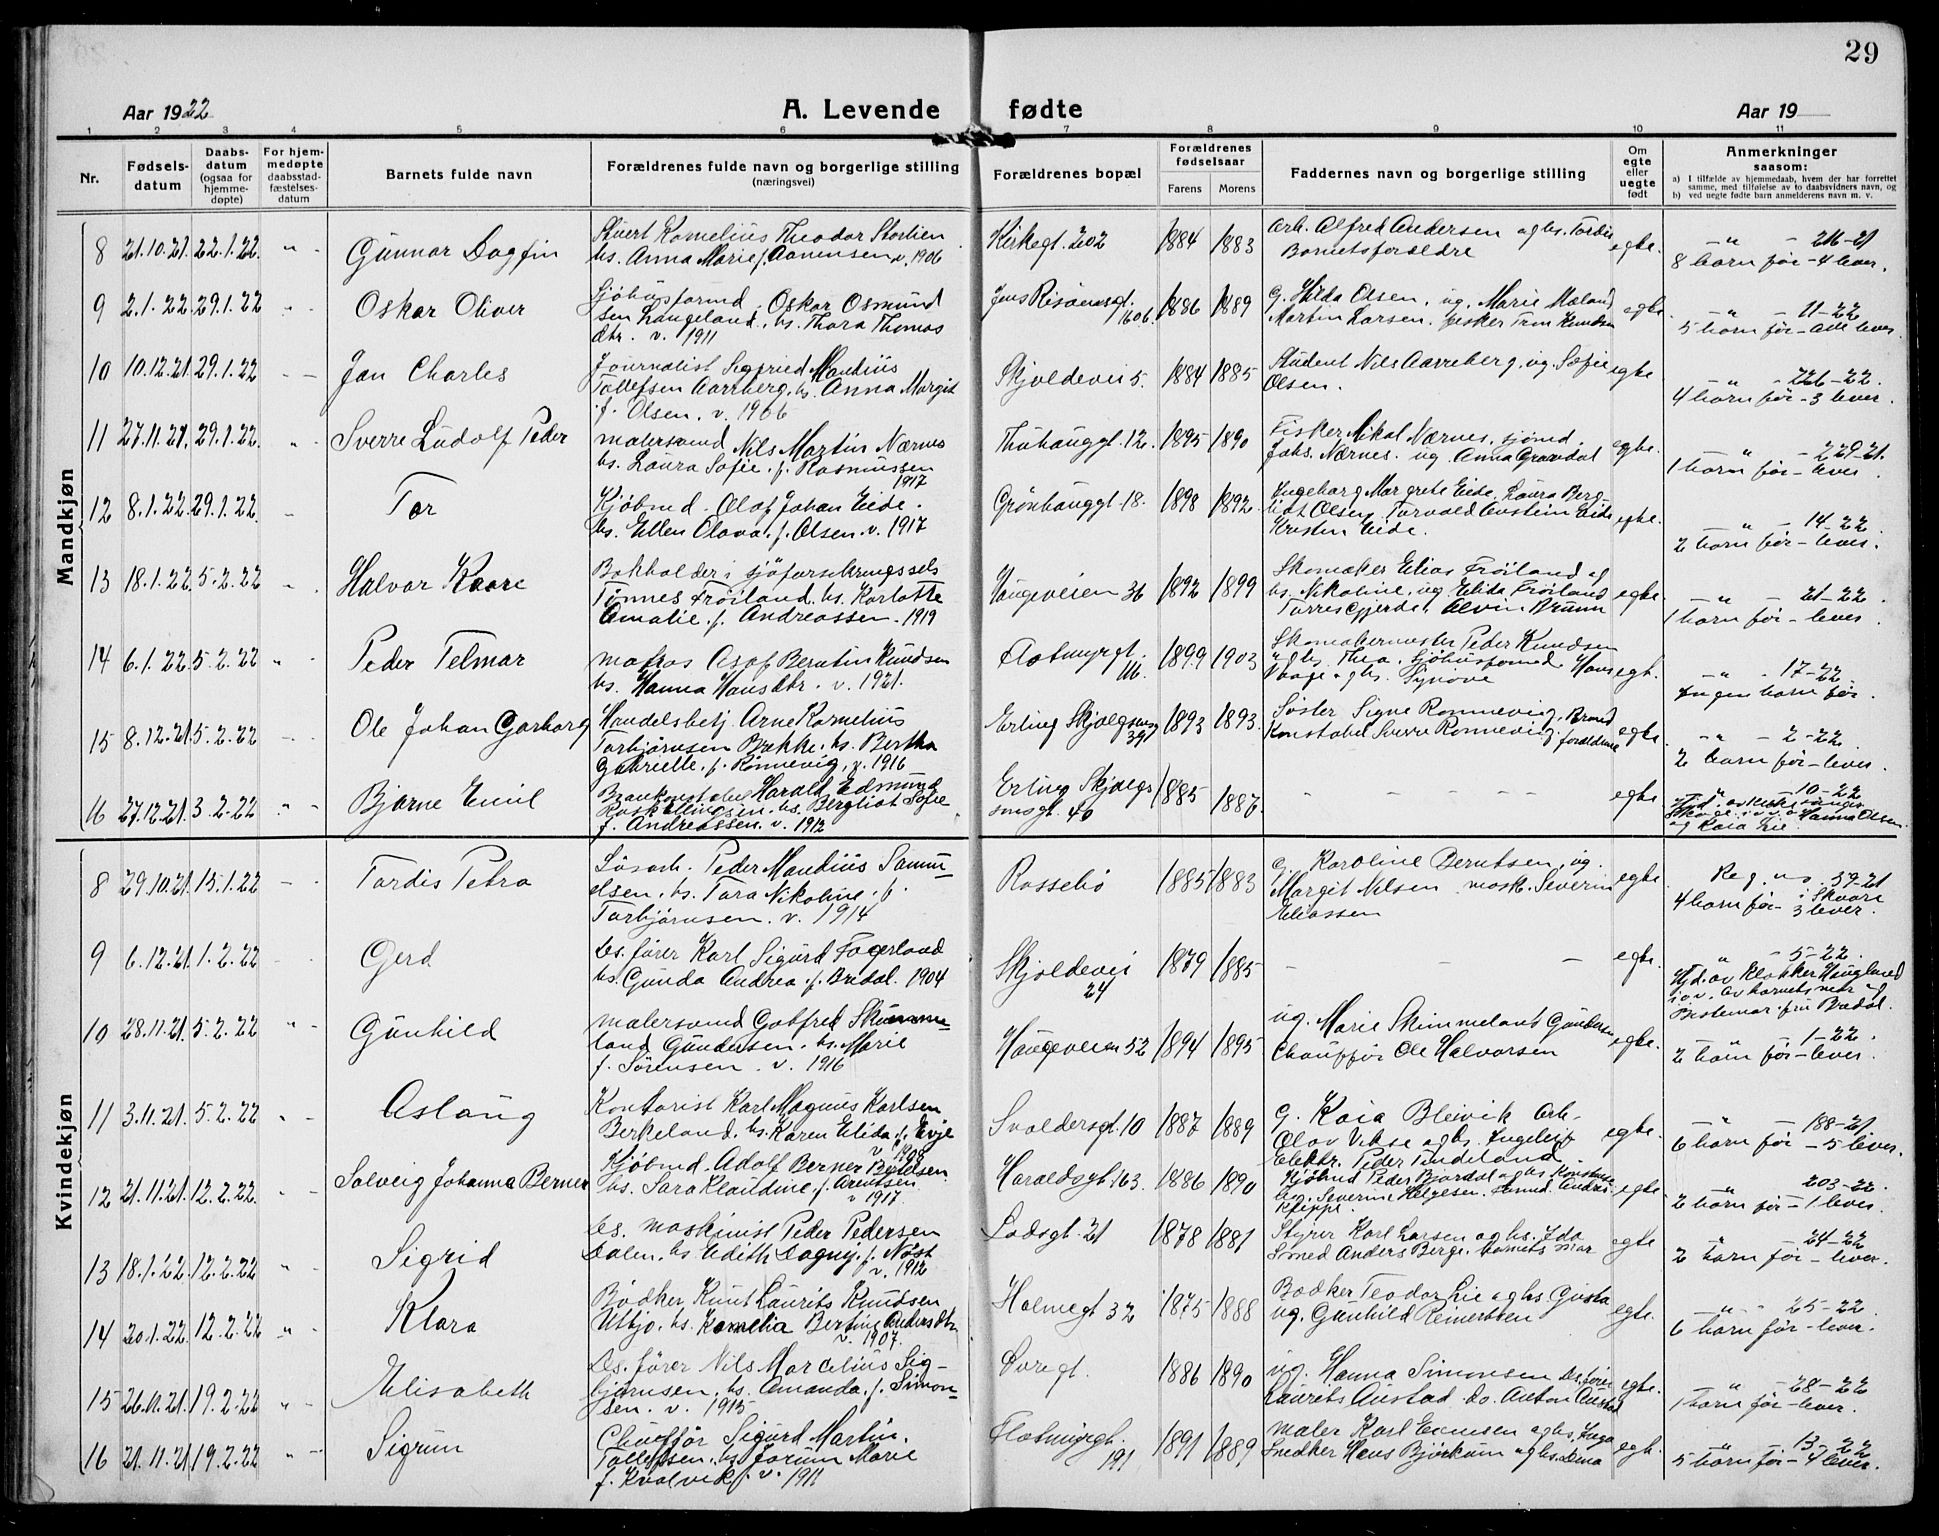 29
Aar 1922
A. Levende fødte
Aar 19
1 2 3 4 5 6 7 8 9 10 11
Nr.
Fødsels-
datum
Daabs-
datum
(ogsaa for
hjemme-
døpte)
For hjem-
medøpte
daabsstad-
fæstelses-
datum
Barnets fulde navn
Forældrenes fulde navn og borgerlige stilling
(næringsvei)
Forældrenes bopæl
Forældrenes
fødselsaar
Farens Morens
Faddernes navn og borgerlige stilling
Om
egte
eller
uegte
født
Anmerkninger
saasom:
a) I tilfælde av hjemmedaab, hvem der har forrettet
samme, med tilføielse av to daabsvidners navn, og
b) ved uegte fødte barn anmelderens navn m. v.
Mandkjøn
8 21.10.21. 22.1.22. Gunnar Dagfin
Stuert Kornelius Theodor Stortien
hs. Anna Marie f. Aanensen v. 1906
Kirkegt. 202 1884 1883
Arb. Alfred Andersen og hs. Tordis
Barnets forældre
egte.
8 barn før - 4 lever.
9 2.1.22. 29.1.22 Oskar Oliver
Sjøhusformd. Oskar Osmund
sen Langeland. hs. Thora Thomas
dtr. v. 1911
Jens Risøensgt. 160b. 1886 1889
G. Hilda Olsen, ug. Marie Mæland
Martin Larsen, fisker Trin Knudsen
egte.
11-22
5 barn før - alle lever
10 10.12.21. 29.1.22 Jan Charles
Journalist Sigfried Mandius
Tollefsen Aarreberg. hs. Anna Margit
f. Olsen. v. 1906
Skjoldevei 5. 1884 1885
Student Nils Aarreberg, ug. Sofie
Olsen.
egte
226-22.
4 barn før - 3 lever.
11 27.11.21. 29.1.22. Sverre Ludolf Peder
Malersvend Nils Martin Nærnes
hs. Laura Sofie f. Rasmussen
1917
Thuhauggt. 12. 1895 1890
Fisker Nikal Nærnes, sjømd.
Johs. Nærnes. ug. Anna Gravdal
egte.
229-21.
1 barn før - lever
12 8.1.22. 29.1.22. Tor
Kjøbmd. Olaf Johan Eide.
hs. Ellen Olava. f. Olsen. v. 1917
Grønhauggt. 18. 1898 1892.
Ingeborg Margrete Eide, Laura Berg-
liot Olsen, Torvald Austein Eide
Kristen Eide.
egte.
14-22
2 barn før - lever.
13 18.1.22. 5.2.22 Halvor Kaare
Bokholder i sjøforsikringssels
Tønnes Frøiland. hs. Karlotte
Amalie. f. Andreassen. 1919
Haugeveien 36 1892 1899
Skomaker Elias Frøiland og
hs. Nikoline, ug Elida Frøiland
Torres Gjerde, Alvin Bruun
egte.
21-22
1 barn før - lever
14 6.1.22. 5.2.22 Peder Telmar
Matros Olaf Berntin Knudsen
hs. Hanna Hansdtr. v. 1921.
Flotmyrgt. 1899 1903
Skomakermester Peder Knudsen
og hs. Thea, Sjøhusformd. Hans
Vaage og hs. Synove
egt.
17-22
Ingen barn før.
15 8.12.21. 5.2.22 Ole Johan Garborg
Handelsbetj. Arne Kornelius
Torbjørnsen Bakke. hs. Bertha
Gabrielle, f. Rønnevig. v. 1916
Erling Skjalgsonsg 39 1893 1893.
Søster Signe Ronnevig, Brand
konstabel Sverre Ronnevig. forældrene
egte.
2-22
2 barn før - lever.
16 27.12.21. 3.2.22 Bjarne Emil
Brankonstabel Harald Edmund
hs. Bergliot Sofie
f. Andreassen. v. 1912
Erling Skjalgs
sonsgt. 40 1885 1886
egte.
10-22
Hanna Olsen
og Kaia Lie.
Kvindekjøn
8 29.10.21. 15.1.22 Tordis Petra
Løsarb. Peder Mandius Samu-
elsen. hs. Tora Nikoline. f.
Torbjørnsen. v. 1914
Rossebø 1885 1883
G. Karoline Berntsen, ug.
Margit Nilsen mask. Severin
Eliassen
egte.
Reg. no. 39-21
i Skaare
4 barn før - 3 lever.
9 6.12.21. 1.2.22 Gerd
Ds. fører Karl Sigurd Fagerland
hs. Gunda Andrea. f. Bredal. 1904
Skjoldevei
24 1879 1885
egte.
5-22
Hjd. av Klokker Haugland
i ov. av barnets mor og
Bestemor fru Bredal.
10 28.11.21. 5.2.22 Gunhild
Malersvend Gotfred Skimme-
land Gundersen. hs. Marie
f. Sørensen. v. 1916
Haugeveien 52 1894 1895
ug. Marie Skimmeland Gundersen
Chauffør Ole Halvorsen
egte.
1-22
2 barn før - lever.
11 3.11.21. 5.2.22 Aslaug
Kontorist Karl Magnus Karlsen
Berkeland. hs. Karen Elida f. Evje
v. 1908
Svoldersgt. 10 1887 1889
G. Kaia Bleivik Arb.
Olav Vikse og hs. Ingeleif
Elektr. Peder Tindeland
egte.
188-21
6 barn før - 5 lever.
12 21.11.21. 12.2.22. Solveig Johanna Berner
Kjøbmd. Adolf Berner Bertelsen
hs. Sara Klaudine. f. Arentsen
v 1917
Haraldsgt. 163. 1886 1890
Kjøbmd Peder Bjordal og hs Konstanse
Severine Helgesen
Kleppe.
egte.
203-22
2 barn før - 1 lever.
13 18.1.22. 12.2.22 Sigrid
Ds. maskinist Peder Pedersen
Dalen. hs. Edith Dagny. f. Nøst
v. 1912
Lodsgt. 21 1878 1881
Styrer Karl Larsen og hs. Ida
Smed Anders Berge. barnets mor
egte
24-22
2 barn før - lever.
14 20.1.22. 12.2.22 Klara
Bødker Knut Laurits Knudsen
Utbjo. hs. Kornelia Bertine Andersdtr.
v. 1907.
Holmegt 32 1875 1888
Bødker Teodor Lie og hs. Gusta
ug. Gunhild Reinertsen
egte.
25-22
6 barn før - lever.
15 26.11.21. 19.2.22 Elisabeth
Ds. fører Nils Marcelius Sig-
bjørnsen. hs. Amanda. f. Simon-
sen. v. 1915
1886 1890
ug. Hanna Simonsen Ds. fører
Laurits Austad. do. Anton Austad
egte.
28-22
1 barn før - lever.
16 21.11.21. 19.2.22 Sigrun
Chauffør Sigurd Martin.
Tollefsen. hs. Jorunn Marie
f. Kvalvik. v. 1911
Flotmyrgt.
191 1891 1889
Maler Karl Evensen og hs. Inga
Snedker Hans Bjørkum og hs. Dina
egt.
13-22
5 barn før - 4 lever.